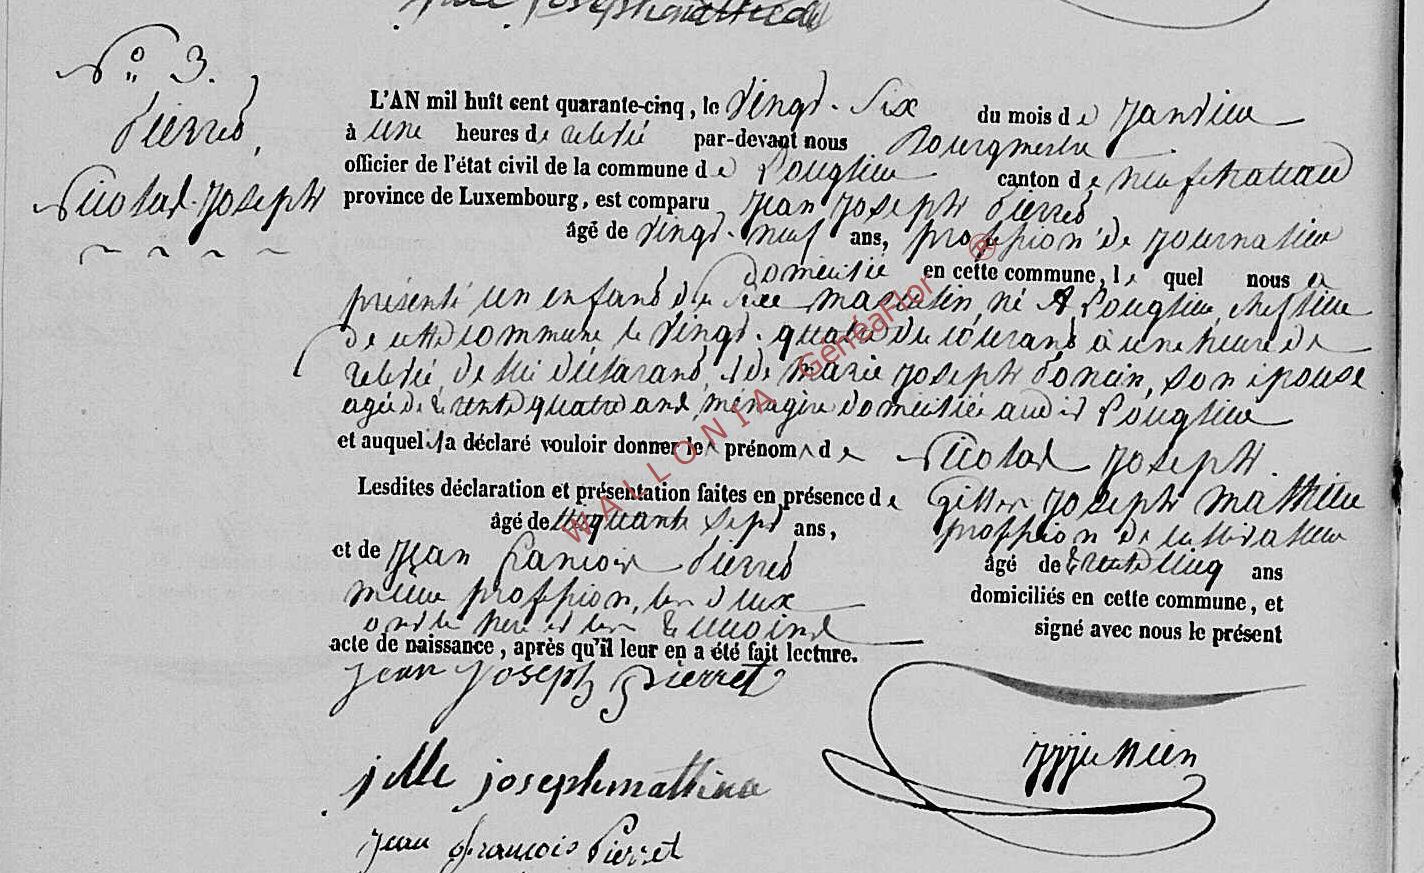 N° 3.
Pierret,
Nicolas Joseph
L'AN mil huit cent quarante-cinq, le Vingt-Six du mois de Janvier
à une heures de relevée par-devant nous Bourgmestre
officier de l'état civil de la commune de Longlier canton de neufchateau
province de Luxembourg, est comparu Jean Joseph Pierret
âgé de Vingt-neuf ans, profession de Journalier
Domicilié en cette commune, lequel nous a
présenté un enfant du Sexe masculin, né A Longlier, chef lieu
de cette commune le Vingt-quatre du courant à une heure de
relevée, de lui déclarant, et de marie Joseph Poncin, son épouse
agée de trente quatre ans, ménagère domiciliée audit Longlier
et auquel il a déclaré vouloir donner les prénoms de Nicolas Joseph.
Lesdites déclaration et présentation faites en présence de Gilles Joseph Mathieu
âgé de cinquante sept ans, profession de cultivateur
et de Jean François Pierret âgé de trente cinq ans
même profession, les deux domiciliés en cette commune, et
ont le père et les témoins signé avec nous le présent
acte de naissance, après qu'il leur en a été fait lecture.
Jean Joseph Pierret
jille joseph mathieu
Jean François Pierret
WALLONIA GénéaFlor ®